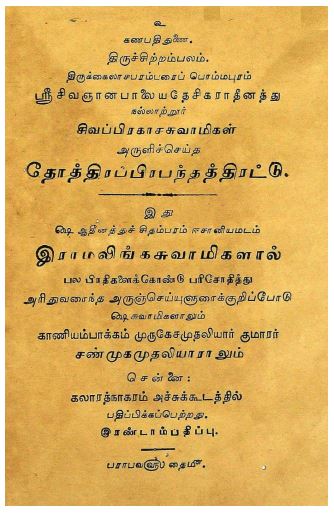 உ
கணபதிதுணை.
திருச்சிற்றம்பலம்.
திருக்கைலாசபரம்பரைப் பொம்மபுரம்
ஸ்ரீ சிவஞானபாலையதேசிகராதீனத்து
நல்லாற்றூர்
சிவப்பிரகாசசுவாமிகள்
அருளிச்செய்த
தோத்திரப்பிரபந்தத்திரட்டு.
இது
௸ ஆதீனத்துச் சிதம்பரம் ஈசானியமடம்
இராமலிங்கசுவாமிகளால்
பல பிரதிகளைக்கொண்டு பரிசோதித்து
அரிதுவரைந்த அருஞ்செய்யுளுரைக்குறிப்போடு
௸சுவாமிகளாலும்
காணியம்பாக்கம் முருகேசமுதலியார் குமாரர்
சண்முகமுதலியாராலும்
சென்னை:
கலாரத்நாகரம் அச்சுக்கூடத்தில்
பதிப்பிக்கப்பெற்றது.
இரண்டாம்பதிப்பு.
பராபவ௵ தை௴.